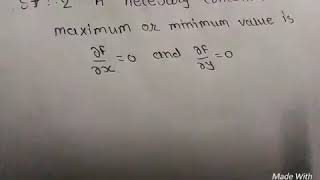 2 A necessary
maximum or minimum value is
∂f/∂x = 0 and ∂f/∂y = 0
Made With